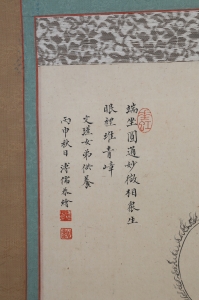 端坐圓通妙微相眾生
眼裡堆青嶂
文蓀女弟供養
丙申秋日溥儒恭繪